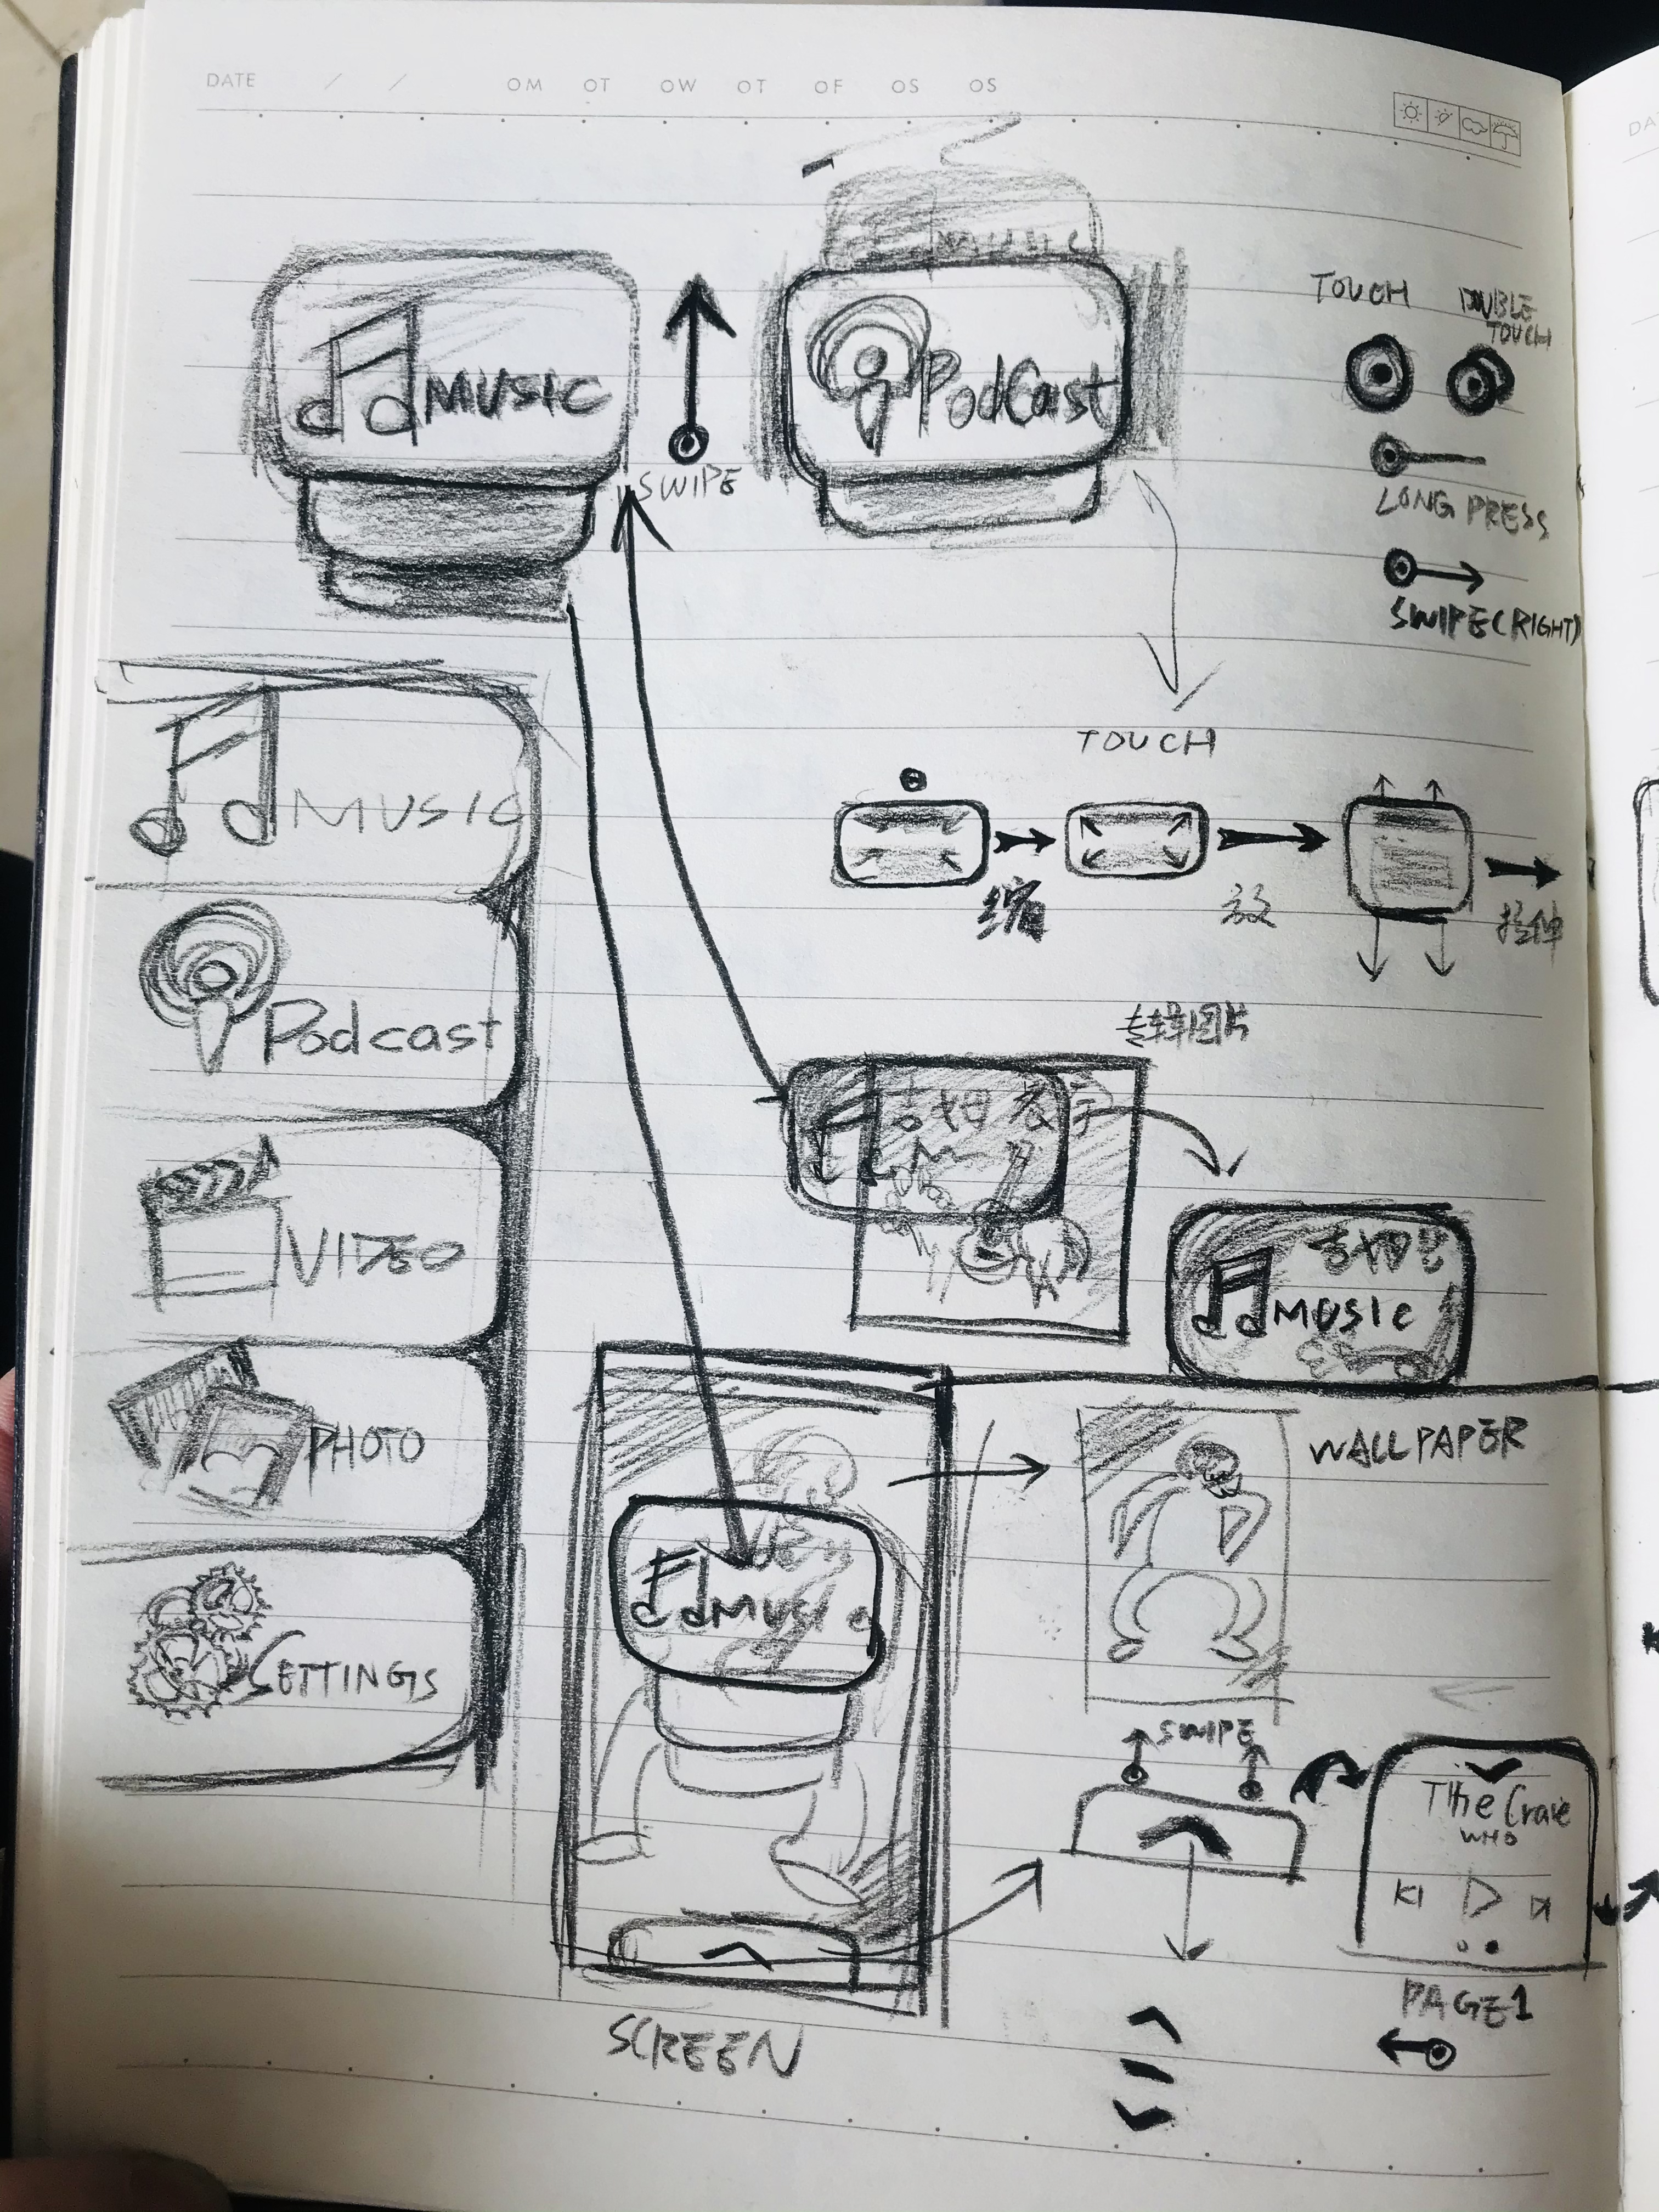 DATE / / OM OT OW OT OF OS OS
MUSIC
MUSIC
SWIPE
PodCast
TOUCH
DOUBLE
TOUCH
LONG PRESS
SWIPE(RIGHT)
MUSIC
Podcast
VIDEO
PHOTO
SETTINGS
TOUCH
缩
放
拉伸
专辑图片
MUSIC
MUSIC
SCREEN
WALLPAPER
SWIPE
The Crave
WHO
PAGE1